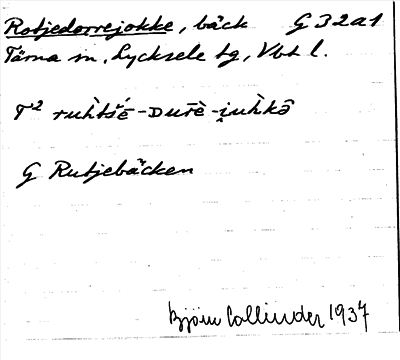 Rotjedorrejokke, bäck G 32a1
Tärna sn, Lycksele lg, Vbt l.
T² ruh̀tśé̄-Dur̄ḕ-i̯uh̀kō̂
G Rutjebäcken
Björn Collinder 1937